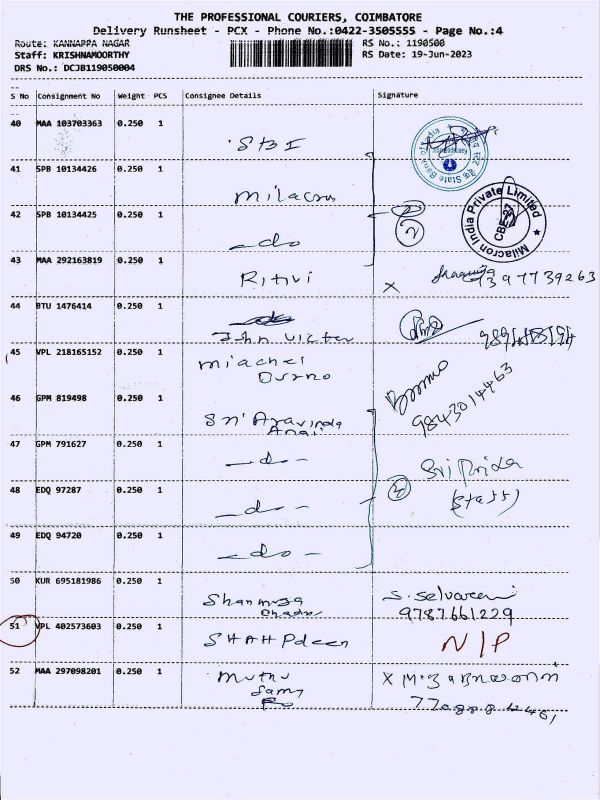 THE PROFESSIONAL COURIERS, COIMBATORE
Delivery Runsheet - PCX - Phone No.:0422-3505555 - Page No.:4
Route: KANNAPPA NAGAR
RS No.: 1190500
Staff: KRISHNAMOORTHY
RS Date: 19-Jun-2023
DRS No.: DCJB119050004
S No Consignment No Weight PCS Consignee Details Signature
40 MAA 103703363 0.250 1 SBI
State Bank of India
41 SPB 10134426 0.250 1 Milacron
Milacron India Private Limited
CBE-27
42 SPB 10134425 0.250 1 -do- 2
43 MAA 292163819 0.250 1 Ritivi X 9397739263
44 BTU 1476414 0.250 1 John Victer
45 VPL 218165152 0.250 1 Miachel
Bruno 9843014463
46 GPM 819498 0.250 1 Sri Aravinda
47 GPM 791627 0.250 1 -do- Sri Priya
48 EDQ 97287 0.250 1 -do- (Staff)
49 EDQ 94720 0.250 1 -do-
50 KUR 695181986 0.250 1 Shanmuga S. Selvarani
9787661229
51 VPL 402573603 0.250 1 SHAH Pdeen N/P
52 MAA 297098201 0.250 1 Muthu X
Samy